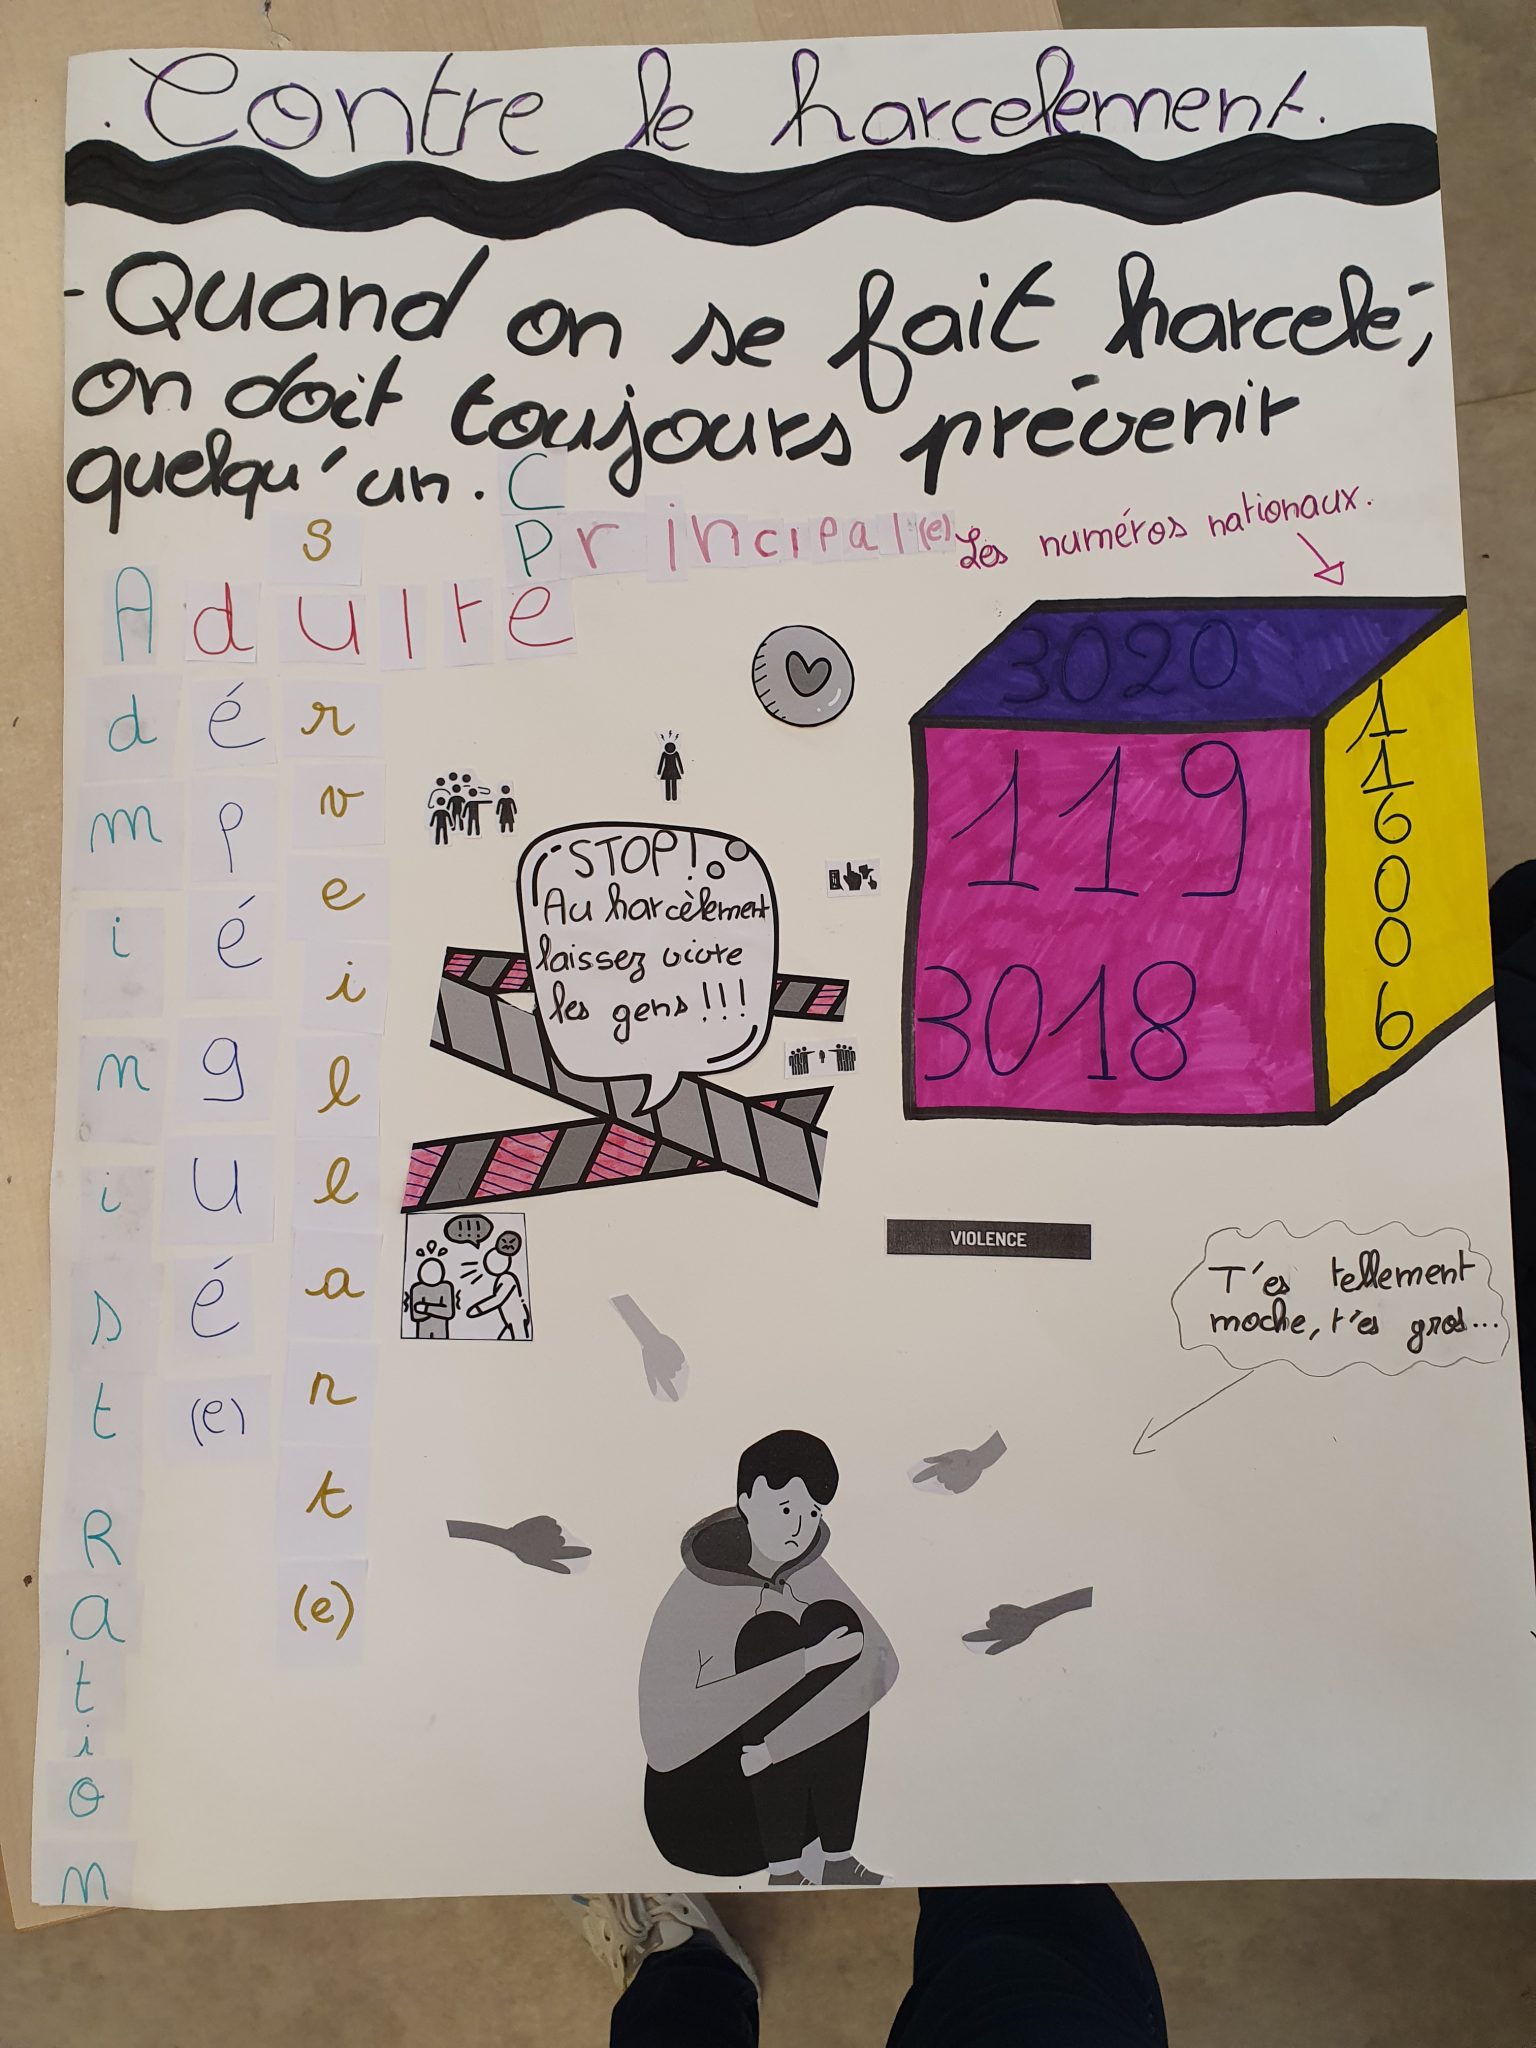 . Contre le harcelement.
- Quand on se fait harcelé,
on doit toujours prévenir
quelqu'un.
CPE
Principal(e)
Adulte
Administration
délégué(e)
surveillant(e)
Les numéros nationaux.
3020
119
3018
116006
STOP!
Au harcèlement
laissez vivre
les gens!!!
!!!
VIOLENCE
T'es tellement
moche, t'es gros...